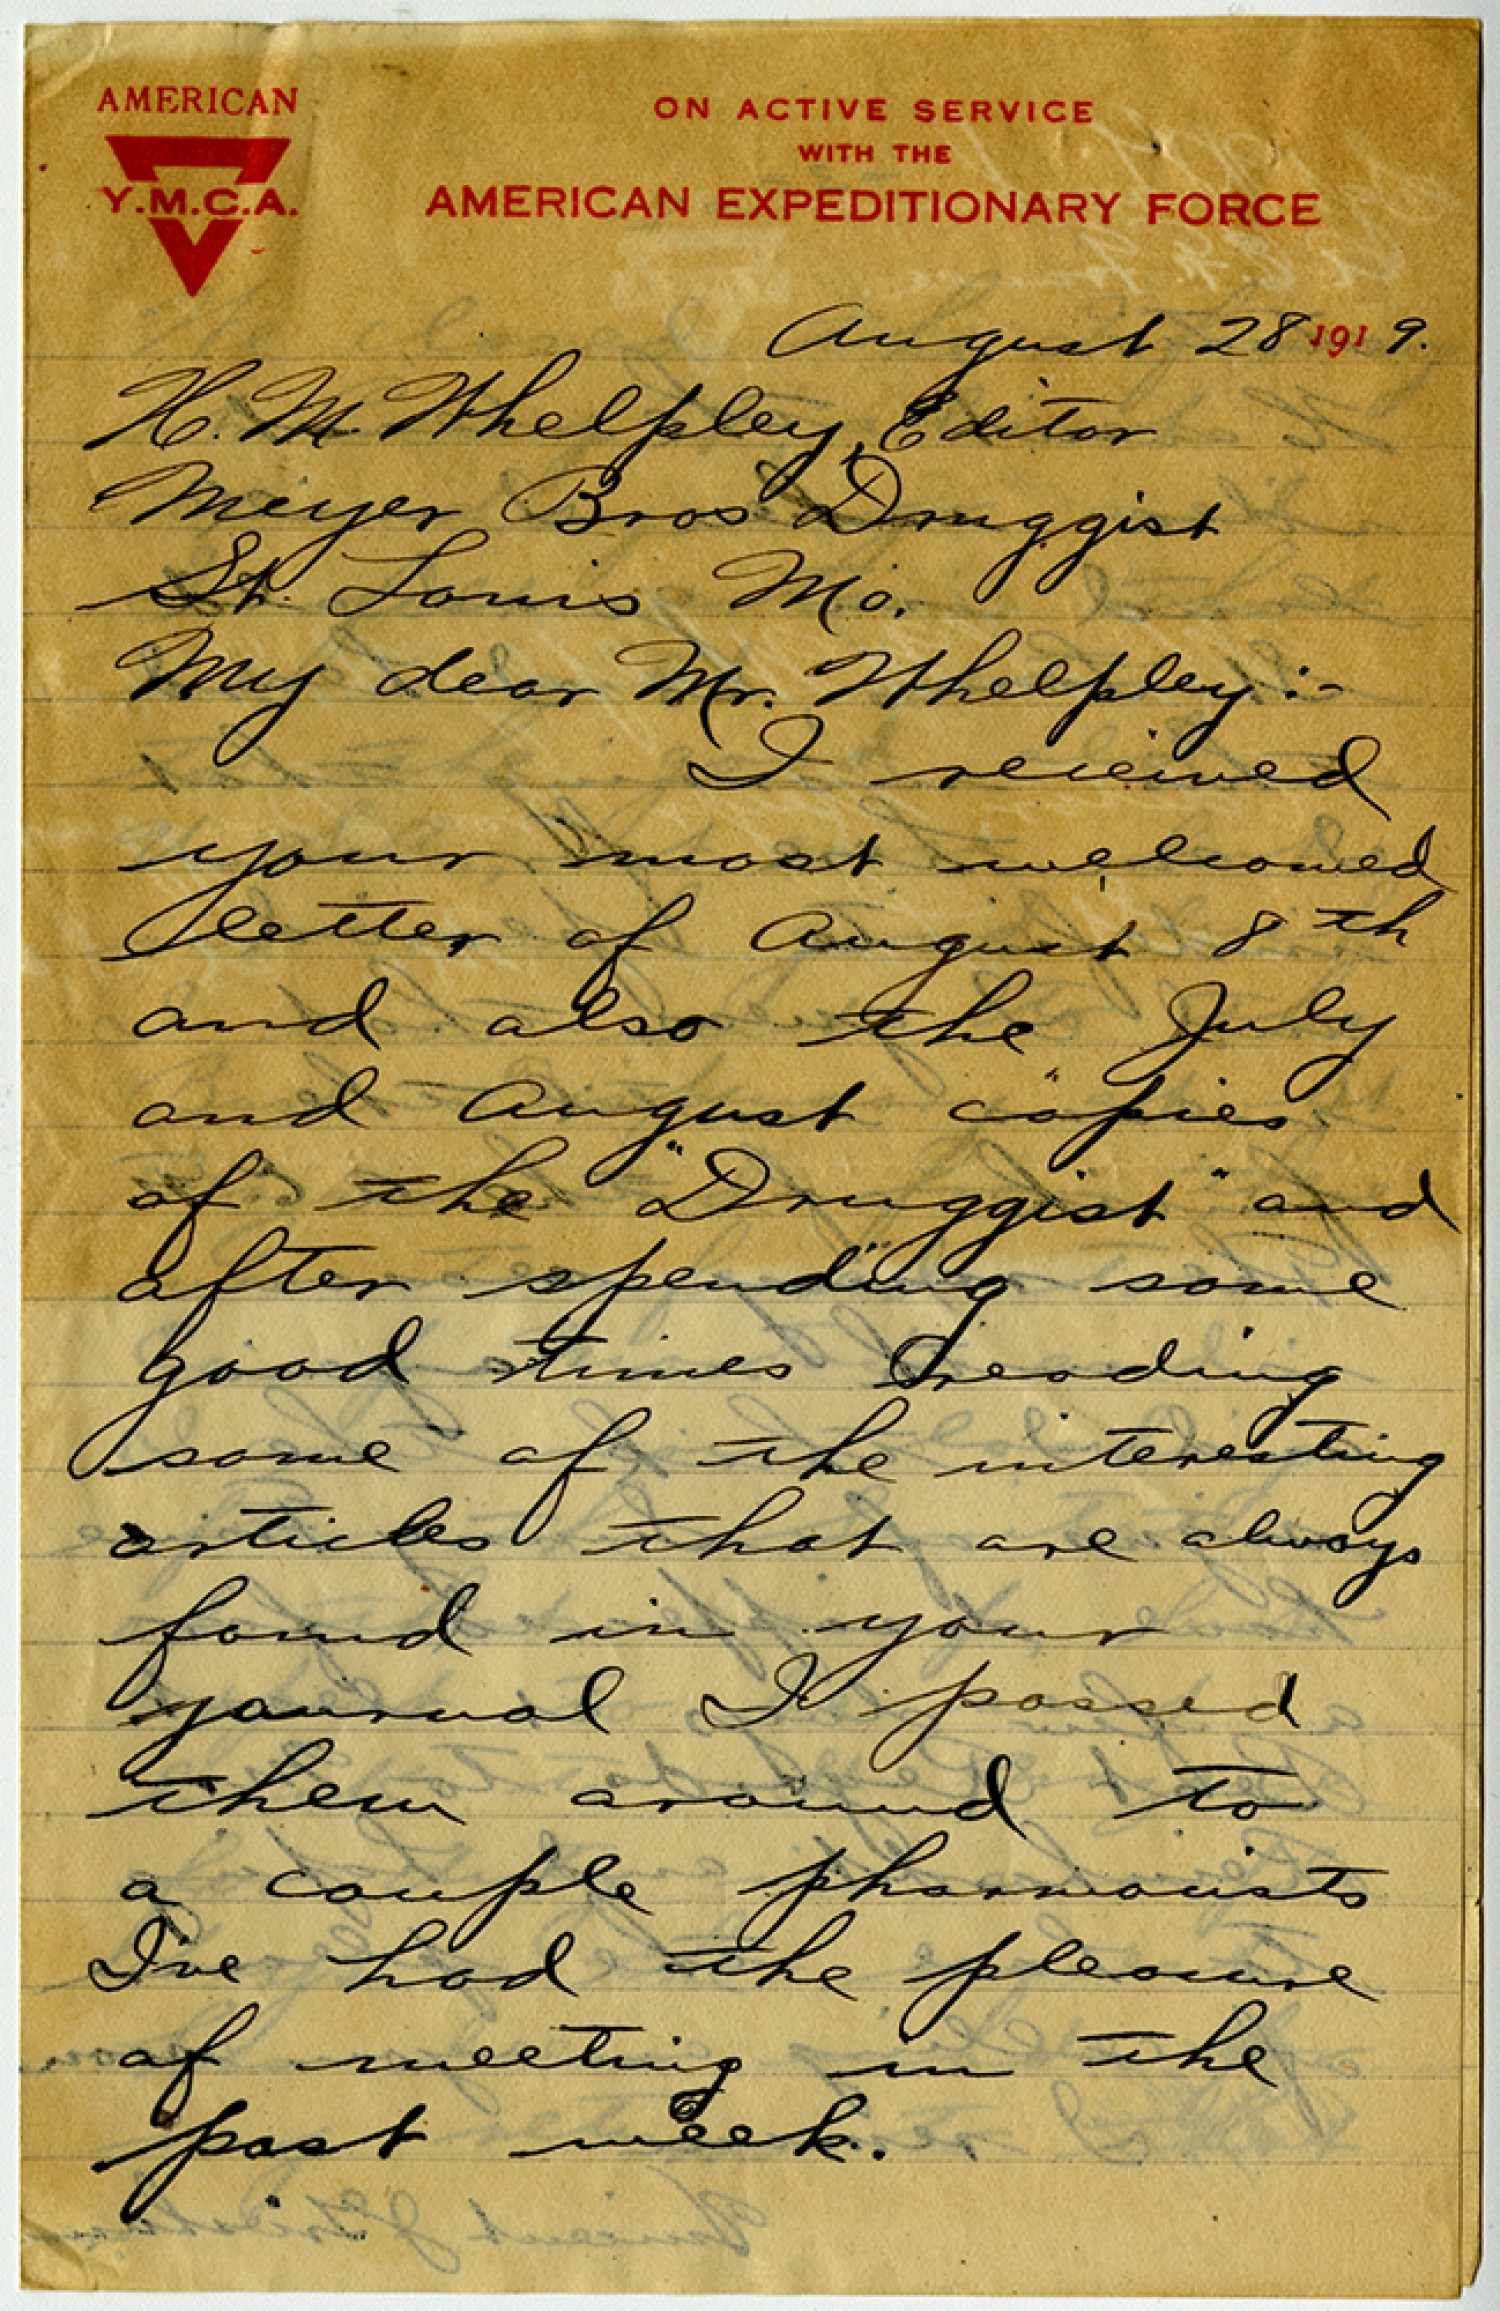 AMERICAN
Y.M.C.A.
ON ACTIVE SERVICE
WITH THE
AMERICAN EXPEDITIONARY FORCE
August 28 1919.
H. M. Whelpley, Editor
Meyer Bros Druggist
St. Louis Mo.
My dear Mr. Whelpley:-
I recieved
your most welcomed
letter of August 8th
and also the July
and August copies
of the "Druggist" and
after spending some
good times reading
some of the interesting
articles that are always
found in your
journal I passed
them around to
a couple pharmacists
I've had the pleasure
of meeting in the
past week.